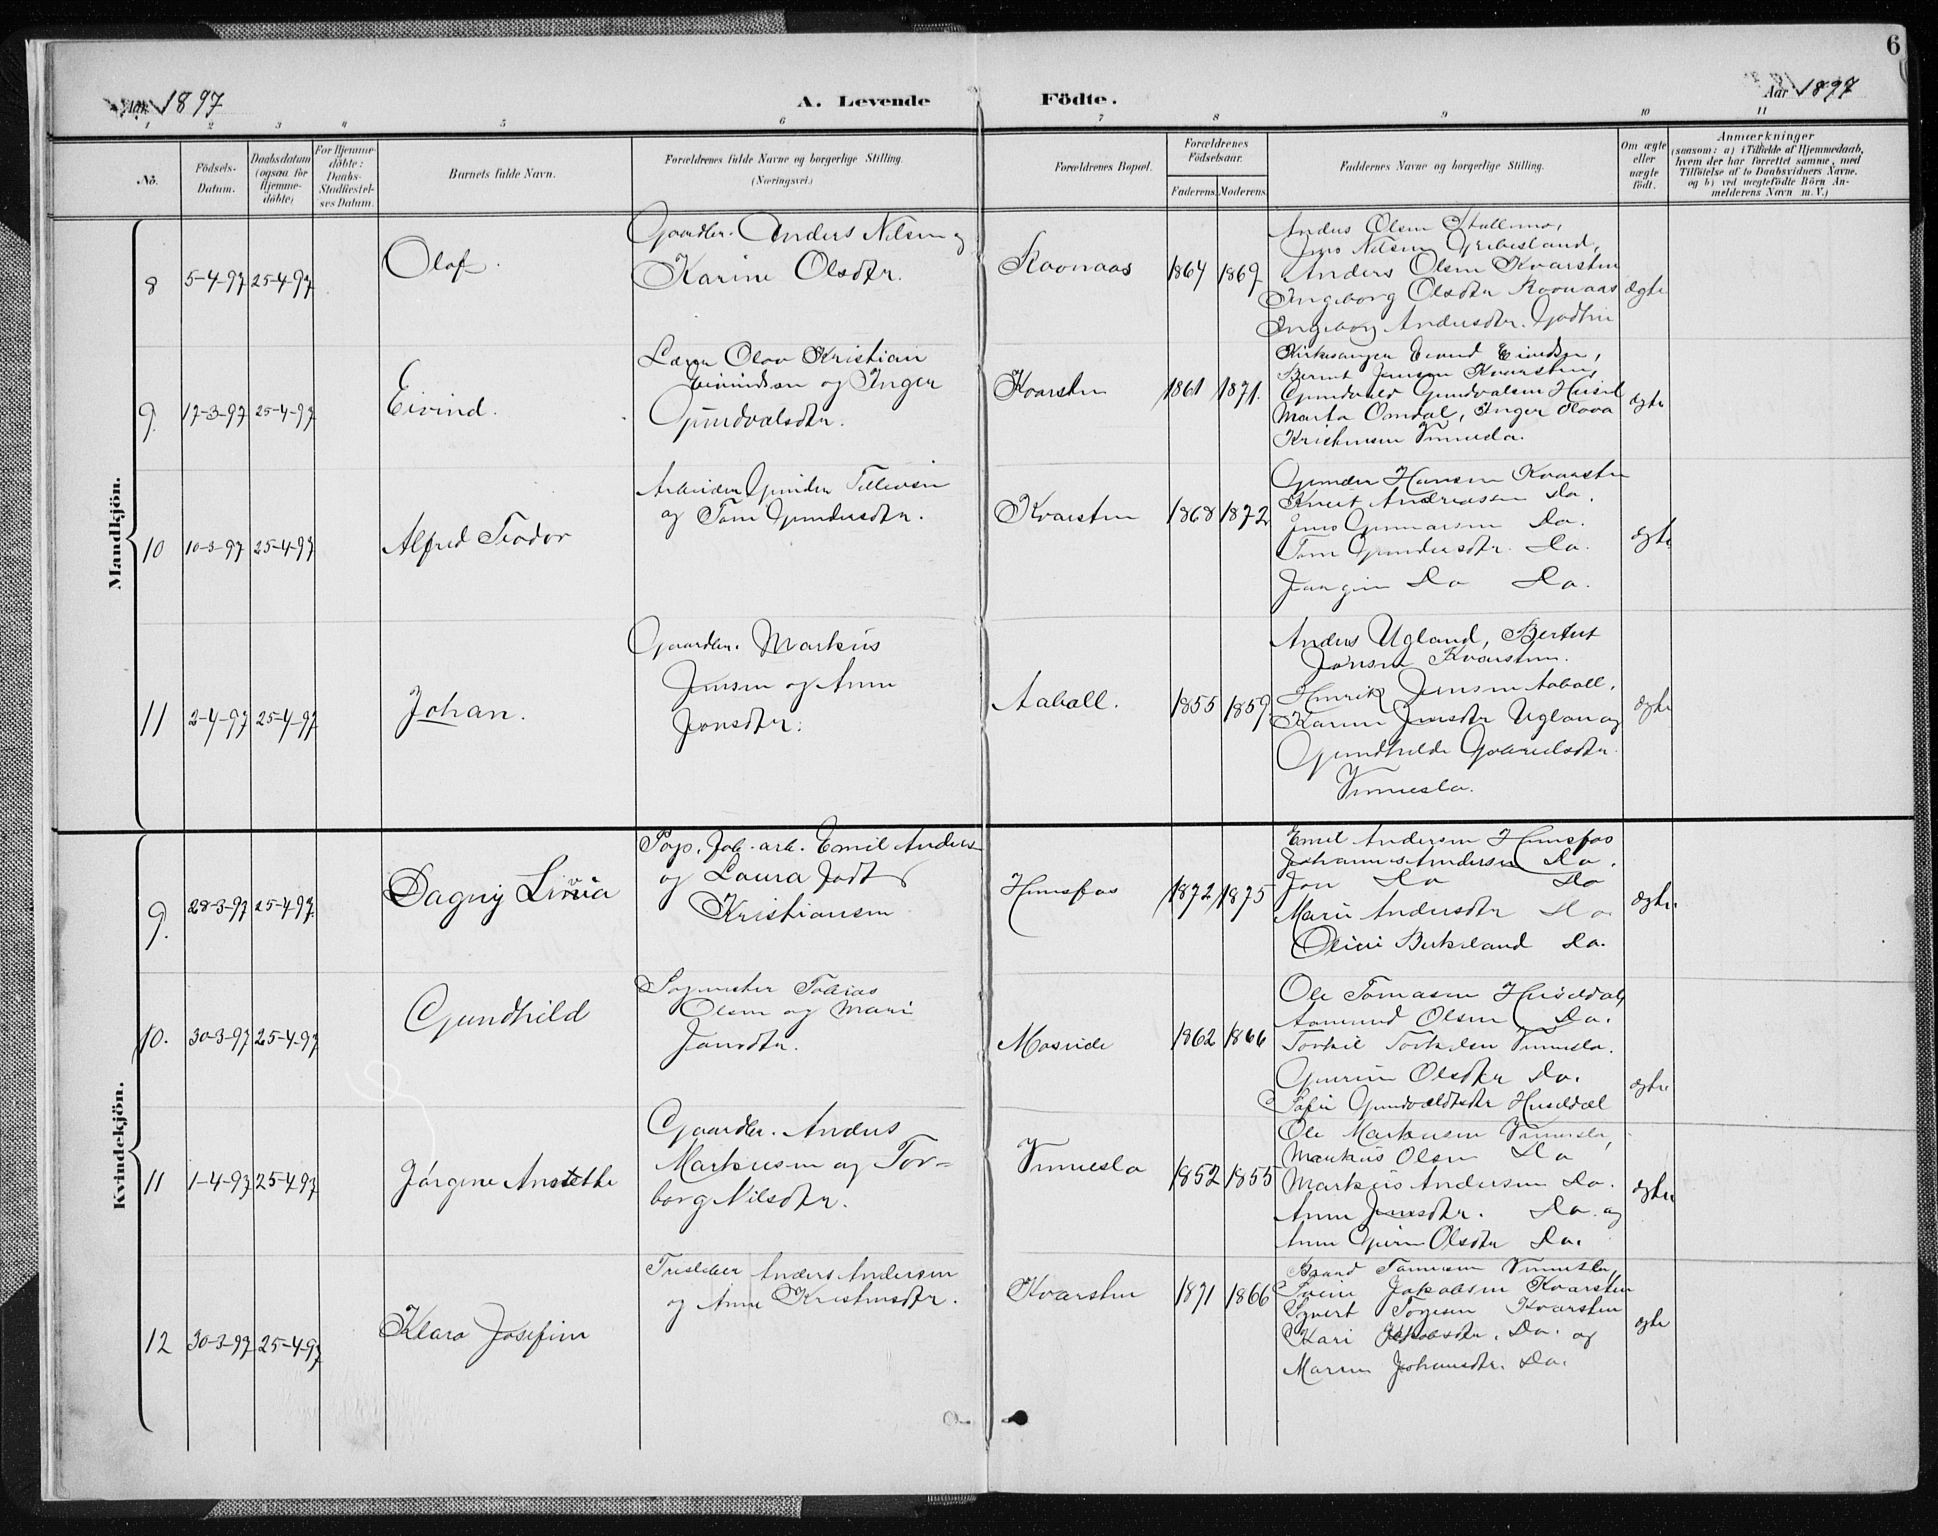 6
Aar 1897 A. Levende Födte. Aar 1897
1 2 3 4 5 6 7 8 9 10 11
No. Födsels-Datum. Daabsdatum (ogsaa for Hjemmedöbte) For Hjemmedöbte: Daabs-Stadfæstelses Datum. Barnets fulde Navn. Forældrenes fulde Navne og borgerlige Stilling. (Næringsvei.) Forældrenes Bopæl. Forældrenes Födselsaar. Faderens Moderens Faddernes Navne og borgerlige Stilling. Om ægte eller uægte födt. Anmærkninger (saasom: a) i Tilfælde af Hjemmedaab, hvem der har forrettet samme, med Tilföielse af to Daabsvidners Navne, og b) ved uægtefödte Börn Anmelderens Navn m. V.)
Mandkjön.
8 5-4-97 25-4-97 Olaf.
Gaardbr. Anders Nilsen og
Karine Olsdtr.
1864 1869
Anders Olsen
Jens Nilsen Gribesland,
Anders Olsen Kvarsten
Ingeborg Olsdtr
Ingeborg Andersdtr.
ægte
9. 17-3-97 25-4-97 Eivind.
Lærer Olav Kristian
Eivindsen og Inger
Gundvalsdtr.
Kvarsten 1861 1871.
Kirkesanger Eivind Eivindsen,
Bernt Jensen Kvarsten,
Gundvald Gundvalsen
Marta Omdal, Inger
Kristensen Vennesla.
ægte
10 10-3-97 25-4-97 Alfred Teodor
Arbeider Gunder Tellevsen
og Tone Gundersdtr.
Kvarsten 1868 1872
Gunder Hansen Kvarsten
Knut Andreassen Do.
Jens Gunnarsen Do.
Tone Gundersdtr. Do.
Do Do.
ægte
11 2-4-97 25-4-97 Johan.
Gaardbr. Markus
Jensen og Anne
Jensdtr.
Aaball. 1855 1859
Anders Ugland, Berent
Jensen Kvarsten.
Henrik Jensen Aaball,
Karen Jensdtr Ugland og
Gundhilde Gabrielsdtr.
Vennesla.
ægte
Kvindekjön.
9. 28-3-97 25-4-97. Dagny Livia
Pap. Fab. arb. Emil Anders.
og Laura født
Kristiansen
Hunsfos 1872 1875
Emil Andersen Hunsfos
Johannes Andersen Do.
Jon Do Do
Marie Andersdtr Do
Birkeland Do.
ægte.
10. 30-3-97 25-4-97 Gundhild
Sagmester Tobias
Olsen og Mari
Jonsdtr.
Moseide 1862 1866
Ole Tomasen Huseldal
Aamund Olsen Do.
Torkel Torkelsen Vennesla.
Gurine Olsdtr Do.
Sofie Gundvaldsdtr Huseldal
ægte
11 1-4-97 25-4-97 Jørgine Anstette
Gaardbr. Anders
Markusen og Tor-
borg Nilsdtr.
Vennesla 1852 1855
Ole Markusen Vennesla,
Markus Olsen Do
Markus Andersen Do.
Anne Jensdtr. Do. og
Anne Gurine Olsdtr Do.
ægte
12 30-3-97 25-4-97 Klara Josefine
Tresliber Anders Andersen
og Anne Kristensdtr.
Kvarsten 1871 1866
Tomesen Vennesla,
Jakobsen Kvarsten
Syvert Kvarsten
Kari Jakobsdtr. Do. og
Maren Johansdtr. Do.
ægte